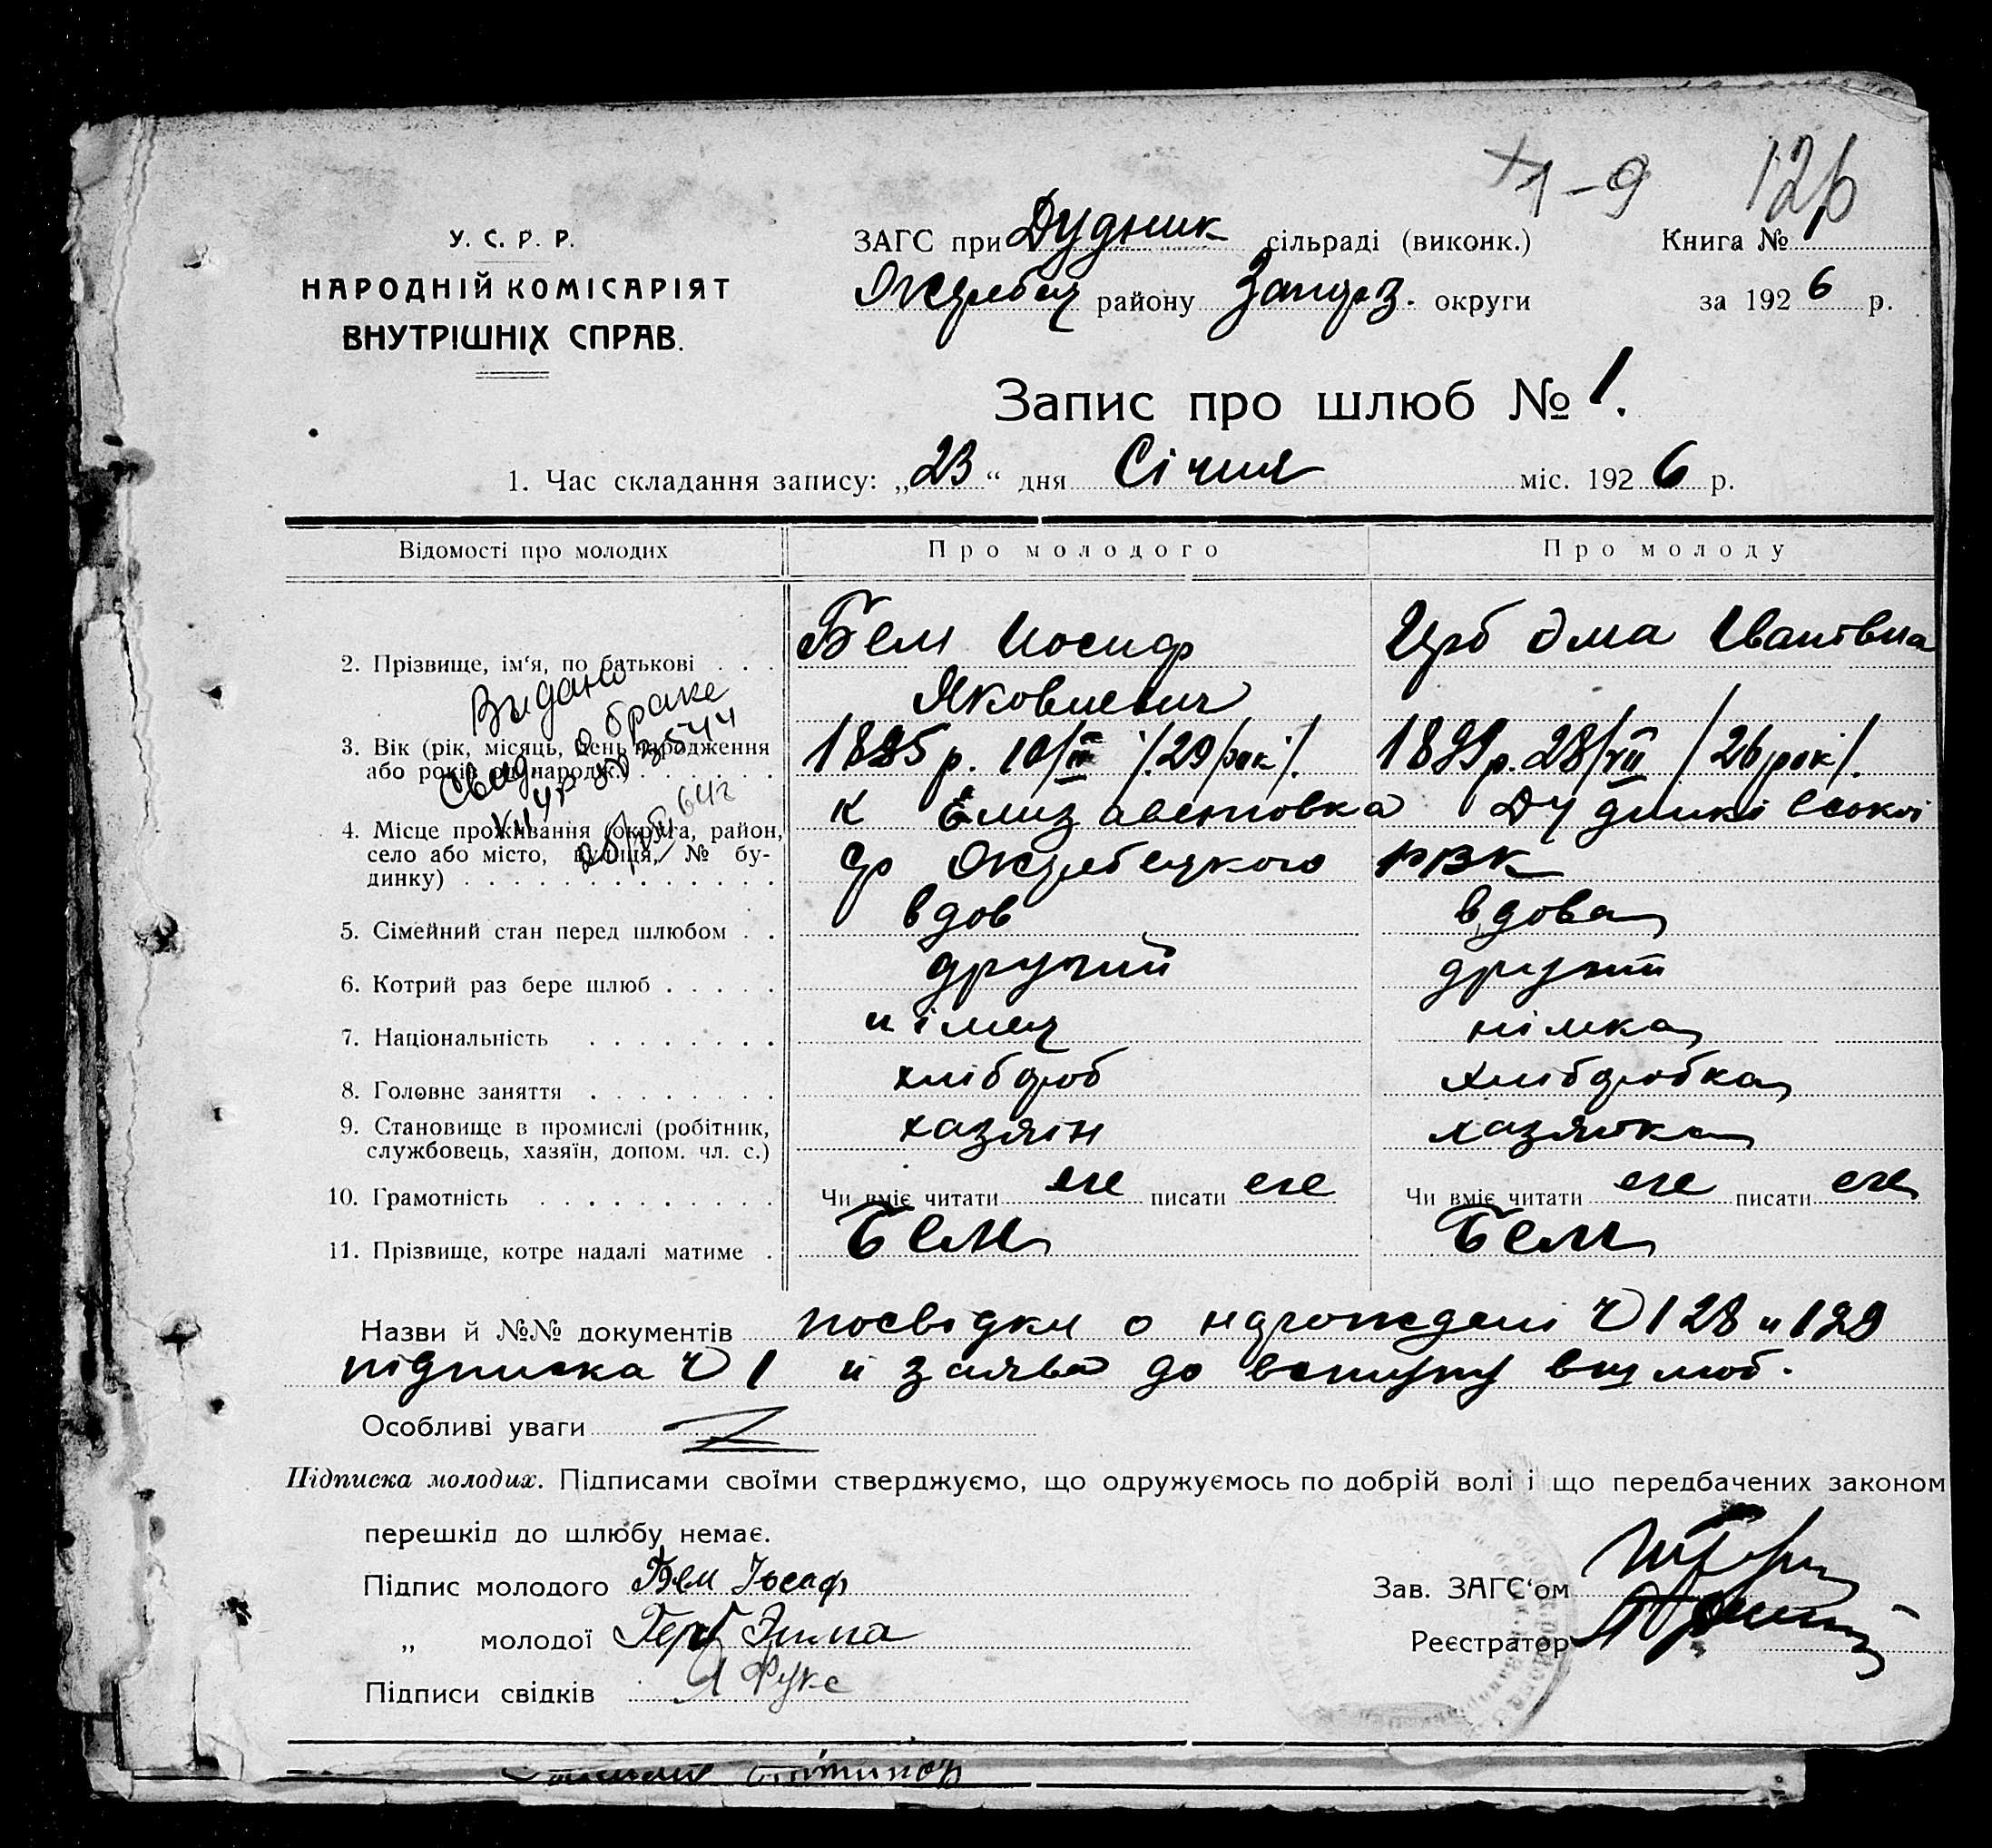 1-9 126
У. С. Р. Р.
НАРОДНІЙ КОМІСАРІЯТ
ВНУТРІШНІХ СПРАВ.
ЗАГС при Дудник сільраді (виконк.) Книга №
району Запоріз. округи за 1926 р.
Запис про шлюб № 1.
1. Час складання запису: „23“ дня Січня міс. 1926 р.
Відомості про молодих Про молодого Про молоду
2. Прізвище, ім'я, по батькові . . . Бем Иосиф Ивановна
Яковлевич
Видано
Свид. о браке
3544
3. Вік (рік, місяць, день народження або років від народж.) 10/ /29 рок/. 1899 р. 28/VII /26 рок/.
4. Місце проживання (округа, район, село або місто, вулиця, № будинку) к Елизаветовка
РВК
5. Сімейний стан перед шлюбом . . вдов вдова
6. Котрий раз бере шлюб . . . . . другий другий
7. Національність . . . . . . . . німец німка
8. Головне заняття . . . . . . . . хлібороб хліборобка
9. Становище в промислі (робітник, службовець, хазяїн, допом. чл. с.) хазяін хазяйка
10. Грамотність . . . . . . . . . . Чи вміє читати еге писати еге Чи вміє читати еге писати еге
11. Прізвище, котре надалі матиме . Бем Бем
Назви й №№ документів посвідки о 128 и 129
підписка Ч 1 и заява до вступу в шлюб.
Особливі уваги
Підписка молодих. Підписами своїми стверджуємо, що одружуємось по добрій волі і що передбачених законом
перешкід до шлюбу немає.
Підпис молодого Бем Іосаф
Зав. ЗАГС‘ом
„ молодої Герб Эмма
Реєстратор
Підписи свідків Я Фукс